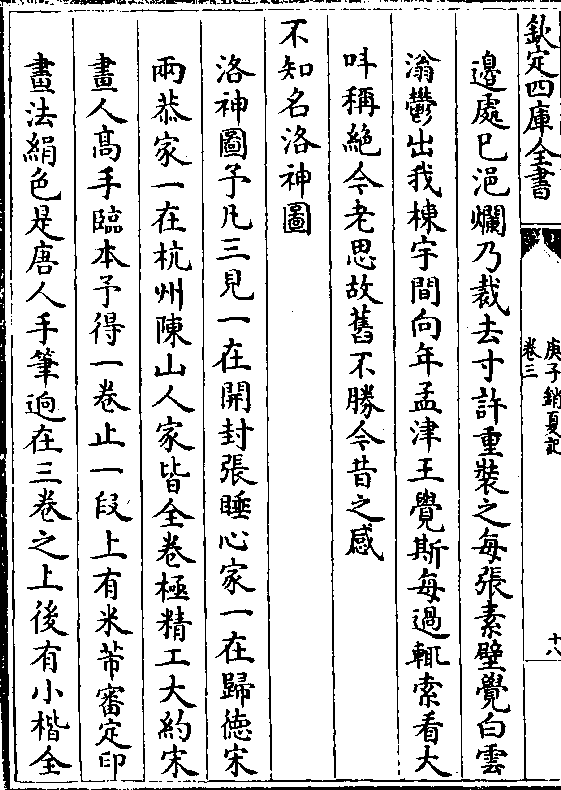 欽定四庫全書
庚子銷夏記
卷三
十八
邊處已浥爛乃裁去寸許重裝之每張素壁覺白雲
滃鬱出我棟宇間向年孟津王覺斯每過輒索看大
呌稱絶今老思故舊不勝今昔之感
不知名洛神圖
洛神圖予凡三見一在開封張睡心家一在歸徳宋
兩恭家一在杭州陳山人家皆全卷極精工大約宋
畫人髙手臨本予得一卷止一段上有米芾審定印
畫法絹色是唐人手筆逈在三卷之上後有小楷全